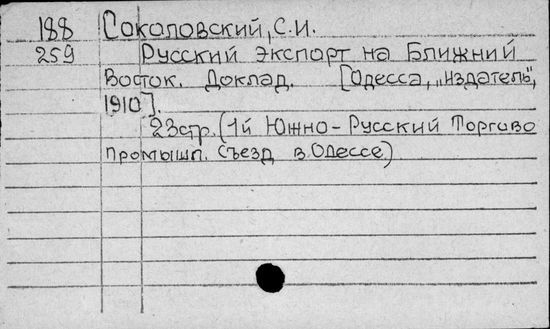 188 Соколовский, С.И.
259 Русский экспорт на Ближний
Восток. Доклад. [Одесса, „издатель",
1910].
23стр. (1й Южно-Русский Торгово
промышл. съезд в Одессе.)